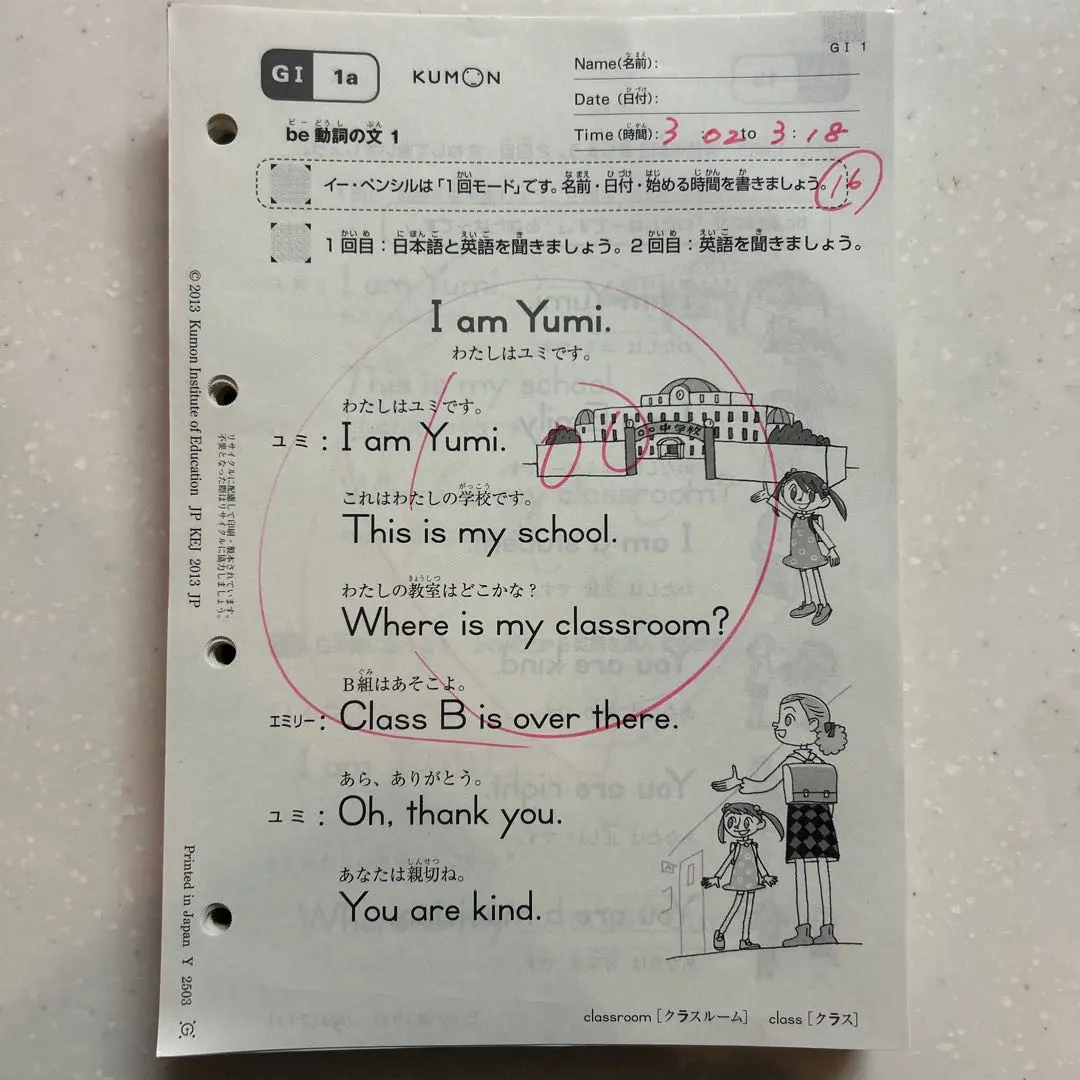 GI 1
GI 1a KUMON
Name(名前):
Date (日付):
Time(時間): 3:02 to 3:18
be動詞の文 1
イー・ペンシルは「1回モード」です。名前・日付・始める時間を書きましょう。
16
1回目：日本語と英語を聞きましょう。2回目：英語を聞きましょう。
I am Yumi.
わたしはユミです。
わたしはユミです。
ユミ： I am Yumi.
中学校
これはわたしの学校です。
This is my school.
わたしの教室はどこかな？
Where is my classroom?
B組はあそこよ。
エミリー： Class B is over there.
あら、ありがとう。
ユミ： Oh, thank you.
あなたは親切ね。
You are kind.
classroom［クラスルーム］ class［クラス］
© 2013 Kumon Institute of Education JP KEJ 2013 JP
リサイクルに配慮して印刷・製本されています。
不要となった際はリサイクルに協力しましょう。
Printed in Japan Y 2503